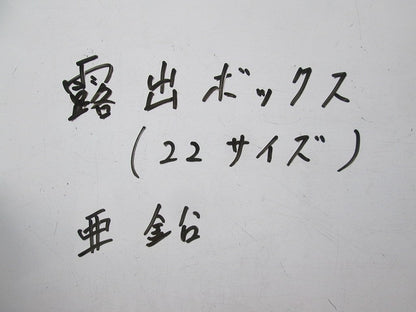 露出ボックス
(22サイズ)
亜鉛